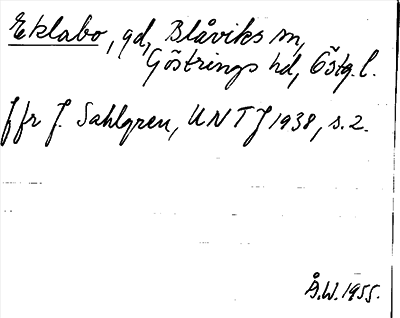 Eklabo, gd, Blåviks sn,
Göstrings hd, Östg. l.
Jfr J. Sahlgren, UNTJ 1938, s. 2.
Å.W. 1955.